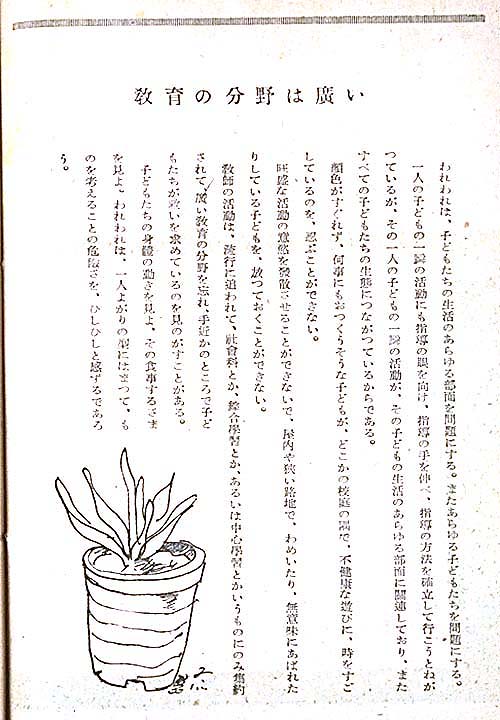 教育の分野は廣い
われわれは、子どもたちの生活のあらゆる部面を問題にする。またあらゆる子どもたちを問題にする。
一人の子どもの一瞬の活動にも指導の眼を向け、指導の手を伸べ、指導の方法を確立して行こうとねが
つているが、その一人の子どもの一瞬の活動が、その子どもの生活のあらゆる部面に関連しており、また
すべての子どもたちの生態につながつているからである。
顔色がすぐれず、何事にもおつくうそうな子どもが、どこかの校庭の隅で、不健康な遊びに、時をすご
しているのを、忍ぶことができない。
旺盛な活動の意慾を發散させることができないで、屋内や狹い路地で、わめいたり、無意味にあばれた
りしている子どもを、放つておくことができない。
教師の活動は、流行に追われて、社會科とか、綜合學習とか、あるいは中心學習とかいうものにのみ集約
されて、廣い教育の分野を忘れ、手近かのところで子ど
もたちが救いを求めているのを見のがすことがある。
子どもたちの身體の動きを見よ、その食事するさま
を見よ、われわれは、一人よがりの型にはまつて、も
のを考えることの危險さを、ひしひしと感ずるであろ
う。